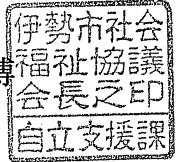 伊勢市社会
福祉協議
会長之印
自立支援課